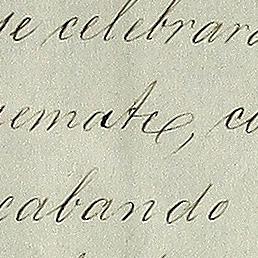 ue celebrara
uemate, co
cabando